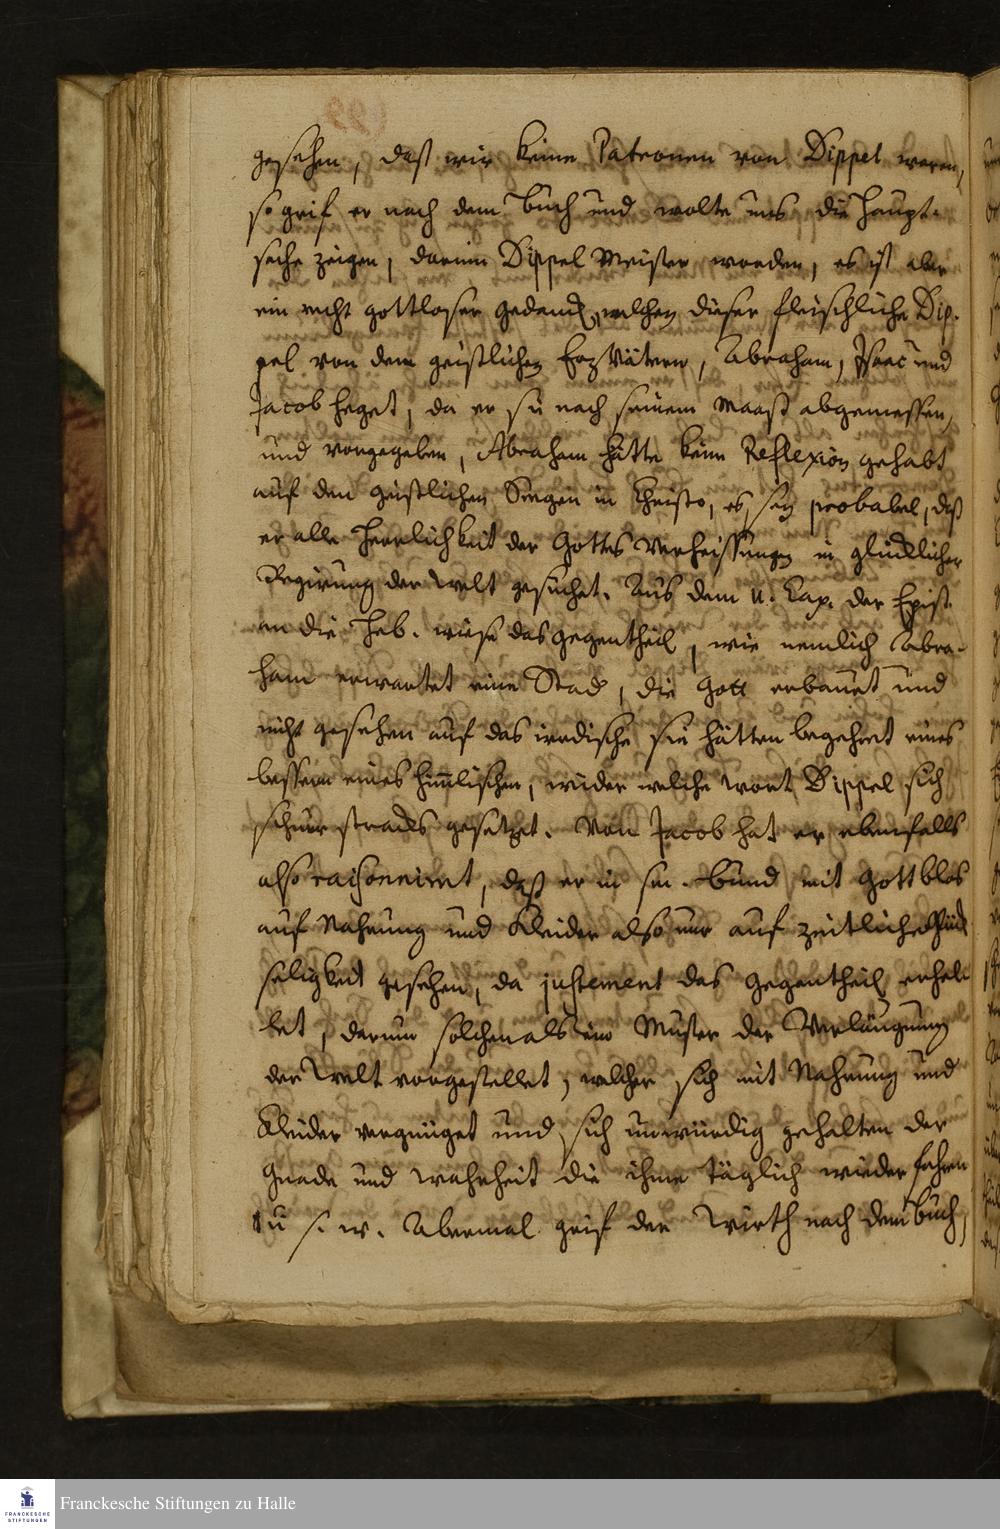 gesehen, daß wir keine Patronen von Dippel waren,
so grif er nach dem Buch und wolte uns die Haupt-
sache zeigen, darinn Dippel Meister worden, es ist aber
ein recht gottloser Gedanck, welchen dieser fleischliche Dip-
pel von dem geistlichen Erz Vätern, Abraham, Isaac und
Jacob heget, da er sie nach seinem Maaß abgemessen,
und vorgegeben, Abraham hätte keine Reflexion gehabt
auf den geistlichen Seegen in Christo, es sey probabel, daß
er alle Herrlichkeit der Gottes Verheissungen in glücklicher
Regirung der Welt gesuchet. Aus dem 11. Cap. der Epist.
an die Heb. wiese das gegentheil, wie nemlich Abra-
ham erwartet eine Stad, die Gott erbauet und
nicht gesehen auf das irdische sie hätten begehret eines
bessern eines him̄lischen, wieder welche wort Dippel sich
schnur stracks gesetzet. Von Jacob hat er ebenfalls
also raisonnirt, daß er in sm. Bund mit Gott blos
auf Nahrung und Kleider also nur auf zeitliche Glück
seligkeit gesehen, da justement das Gegentheil erhel-
let, darum solchen als ein Muster der Verläugnung
der Welt vorgestellet, welcher sich mit Nahrung und
Kleider vergnüget und sich unwürdig gehalten der
Gnade und Wahrheit die ihme täglich wiederfahren
u s. w. Abermal grif der Wirth nach dem Buch,
Franckesche Stiftungen zu Halle
FRANCKESCHE
STIFTUNGEN